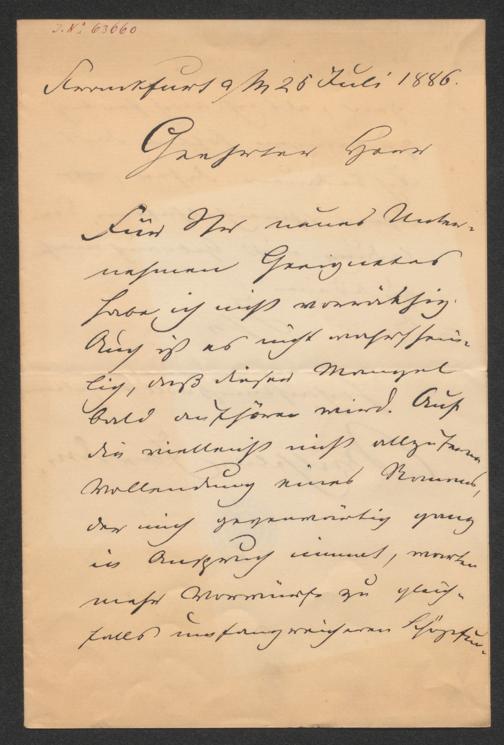 J. N. 63660
Frankfurt a/M 25 Juli 1886.
Geehrter Herr
Für Ihr neues Unter-
nehmen Geeignetes
habe ich nicht vorräthig.
Auch ist es nicht wahrschein-
lich, daß dieser Mangel
bald aufhören wird. Auf
die vielleicht nicht allzuferne
Vollendung eines Romans,
der mich gegenwärtig ganz
in Anspruch nimmt, warten
mehr Vorwürfe zu gleich-
falls umfangreicheren Schöpfun-